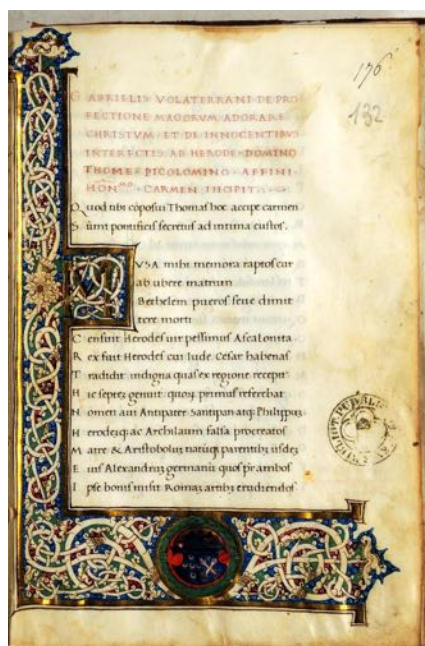 176
132
GABRIELIS VOLATERRANI DE PRO
FECTIONE MAGORVM ADORARE
CHRISTVM · ET DE INNOCENTIBVS
INTERFECTIS AB HERODE · DOMINO
THOME PICOLOMINO AFFINI
CARMEN INCIPIT
Quod tibi cōposui Thomas hoc accipe carmen
Summi pontificis secretus ad intima custos.
MVSA mihi memora raptos cur
ab ubere matrum
Bethelem pueros seue dimit
tere morti
Censuit Herodes uir pessimus Ascalonita
Rex fuit Herodes cui Iude Cesar habenas
Tradidit indigna quas ex regione recepit
Hic septez genuit quoꝝ primus referebat
Nomen aui Antipater Santipan atqꝫ Philippus
Herodesqꝫ ac Archilaum falsa procreatos
Matre & Aristobolus natusqꝫ parentibꝫ iisdez
Eius Alexandrius germanus quos pit ambos
Ipse bonis misit Romaz artibꝫ erudiendos